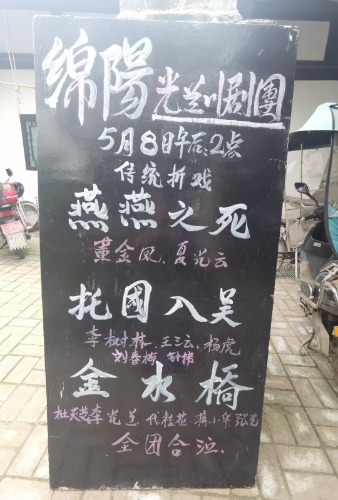 绵陽光兰川剧團
5月8日午后:2点
传统折戏
燕燕之死
黄金凤、夏光云
托國入吴
李树林、王三云、杨虎
刘香梅
金水橋
杜天慧李光兰、代桂花 蒋小华张
全团合演